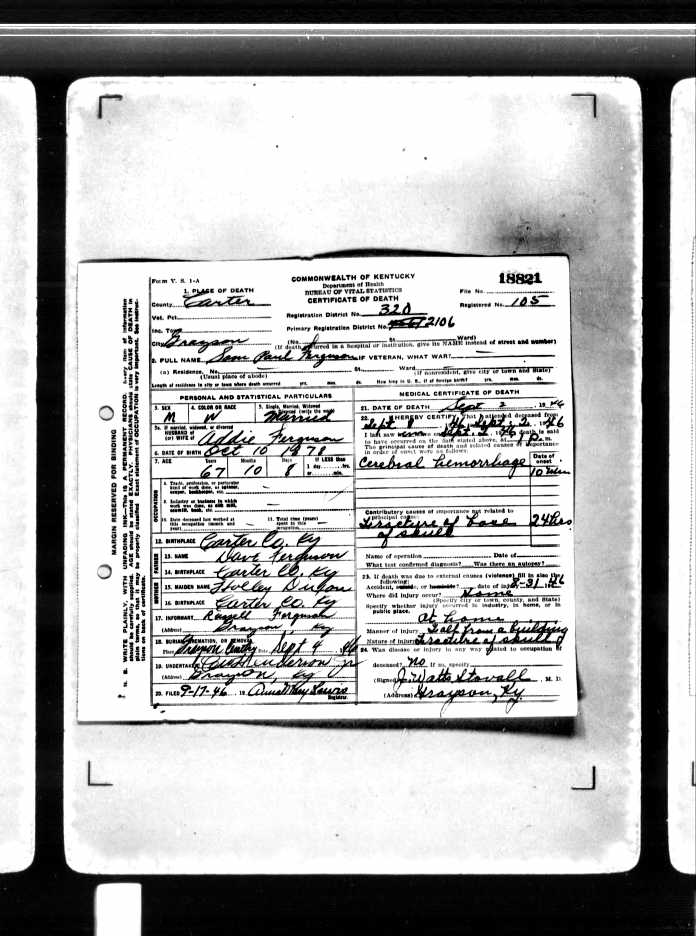 Form V. S. 1-A
COMMONWEALTH OF KENTUCKY
Department of Health
BUREAU OF VITAL STATISTICS
CERTIFICATE OF DEATH
18821
File No.
Registered No. 105
1. PLACE OF DEATH
County Carter
Vot. Pct.
Inc. Town
City Grayson
Registration District No. 320
Primary Registration District No. 2106
(No. St. Ward)
(If death occurred in a hospital or institution, give its NAME instead of street and number)
2. FULL NAME Sam Paul Ferguson IF VETERAN, WHAT WAR?
(a) Residence, No. St. Ward
(Usual place of abode) (If nonresident, give city or town and State)
Length of residence in city or town where death occurred yrs. mos. ds. How long in U. S., if of foreign birth? yrs. mos. ds.
PERSONAL AND STATISTICAL PARTICULARS
3. SEX M
4. COLOR OR RACE W
5. Single, Married, Widowed
or Divorced (write the word) Married
5a. If married, widowed, or divorced
HUSBAND of
(or) WIFE of Addie Ferguson
6. DATE OF BIRTH Oct 10 1878
7. AGE Years Months Days If LESS than
67 10 8 1 day hrs.
or min.
OCCUPATION
8. Trade, profession, or particular
kind of work done, as spinner,
sawyer, bookkeeper, etc.
9. Industry or business in which
work was done, as silk mill,
sawmill, bank, etc.
10. Date deceased last worked at
this occupation (month and
year)
11. Total time (years)
spent in this
occupation
12. BIRTHPLACE Carter Co. Ky
FATHER
13. NAME Dave Ferguson
14. BIRTHPLACE Carter Co. Ky
MOTHER
15. MAIDEN NAME
16. BIRTHPLACE Carter Co. Ky
17. INFORMANT Russell Ferguson
(Address) Grayson Ky
18. BURIAL, CREMATION, OR REMOVAL
Place Grayson Date Sept 4 46
19. UNDERTAKER Henderson Jr
(Address) Grayson, Ky
20. FILED 9-17-46, 19 Anna May Lewis
Registrar.
MEDICAL CERTIFICATE OF DEATH
21. DATE OF DEATH Sept 2, 1946
22. I HEREBY CERTIFY, That I attended deceased from
I last saw alive on death is said
to have occurred on the date stated above, at m.
The principal cause of death and related causes of importance
in order of onset were as follows:
Date of
onset
Cerebral hemorrhage 10
Contributory causes of importance not related to
principal cause:
Fracture of base 24 hrs
of skull
Name of operation Date of
What test confirmed diagnosis? Was there an autopsy?
23. If death was due to external causes (violence) fill in also the
following:
Accident, suicide, or homicide? date of injury 8-31, 46
Where did injury occur? Home
(Specify city or town, county, and State)
Specify whether injury occurred in industry, in home, or in
public place.
At home
Manner of injury Fall from a building
Nature of injury Fracture of skull
24. Was disease or injury in any way related to occupation of
deceased? No If so, specify
(Signed) J. Watts Stovall, M. D.
(Address) Grayson, Ky.
MARGIN RESERVED FOR BINDING
N. B. WRITE PLAINLY, WITH UNFADING INK—This is A PERMANENT RECORD. Every item of information
should be carefully supplied. AGE should be stated EXACTLY. PHYSICIANS should state CAUSE OF DEATH in
plain terms, so that it may be properly classified. Exact statement of OCCUPATION is very important. See instruc-
tions on back of certificate.